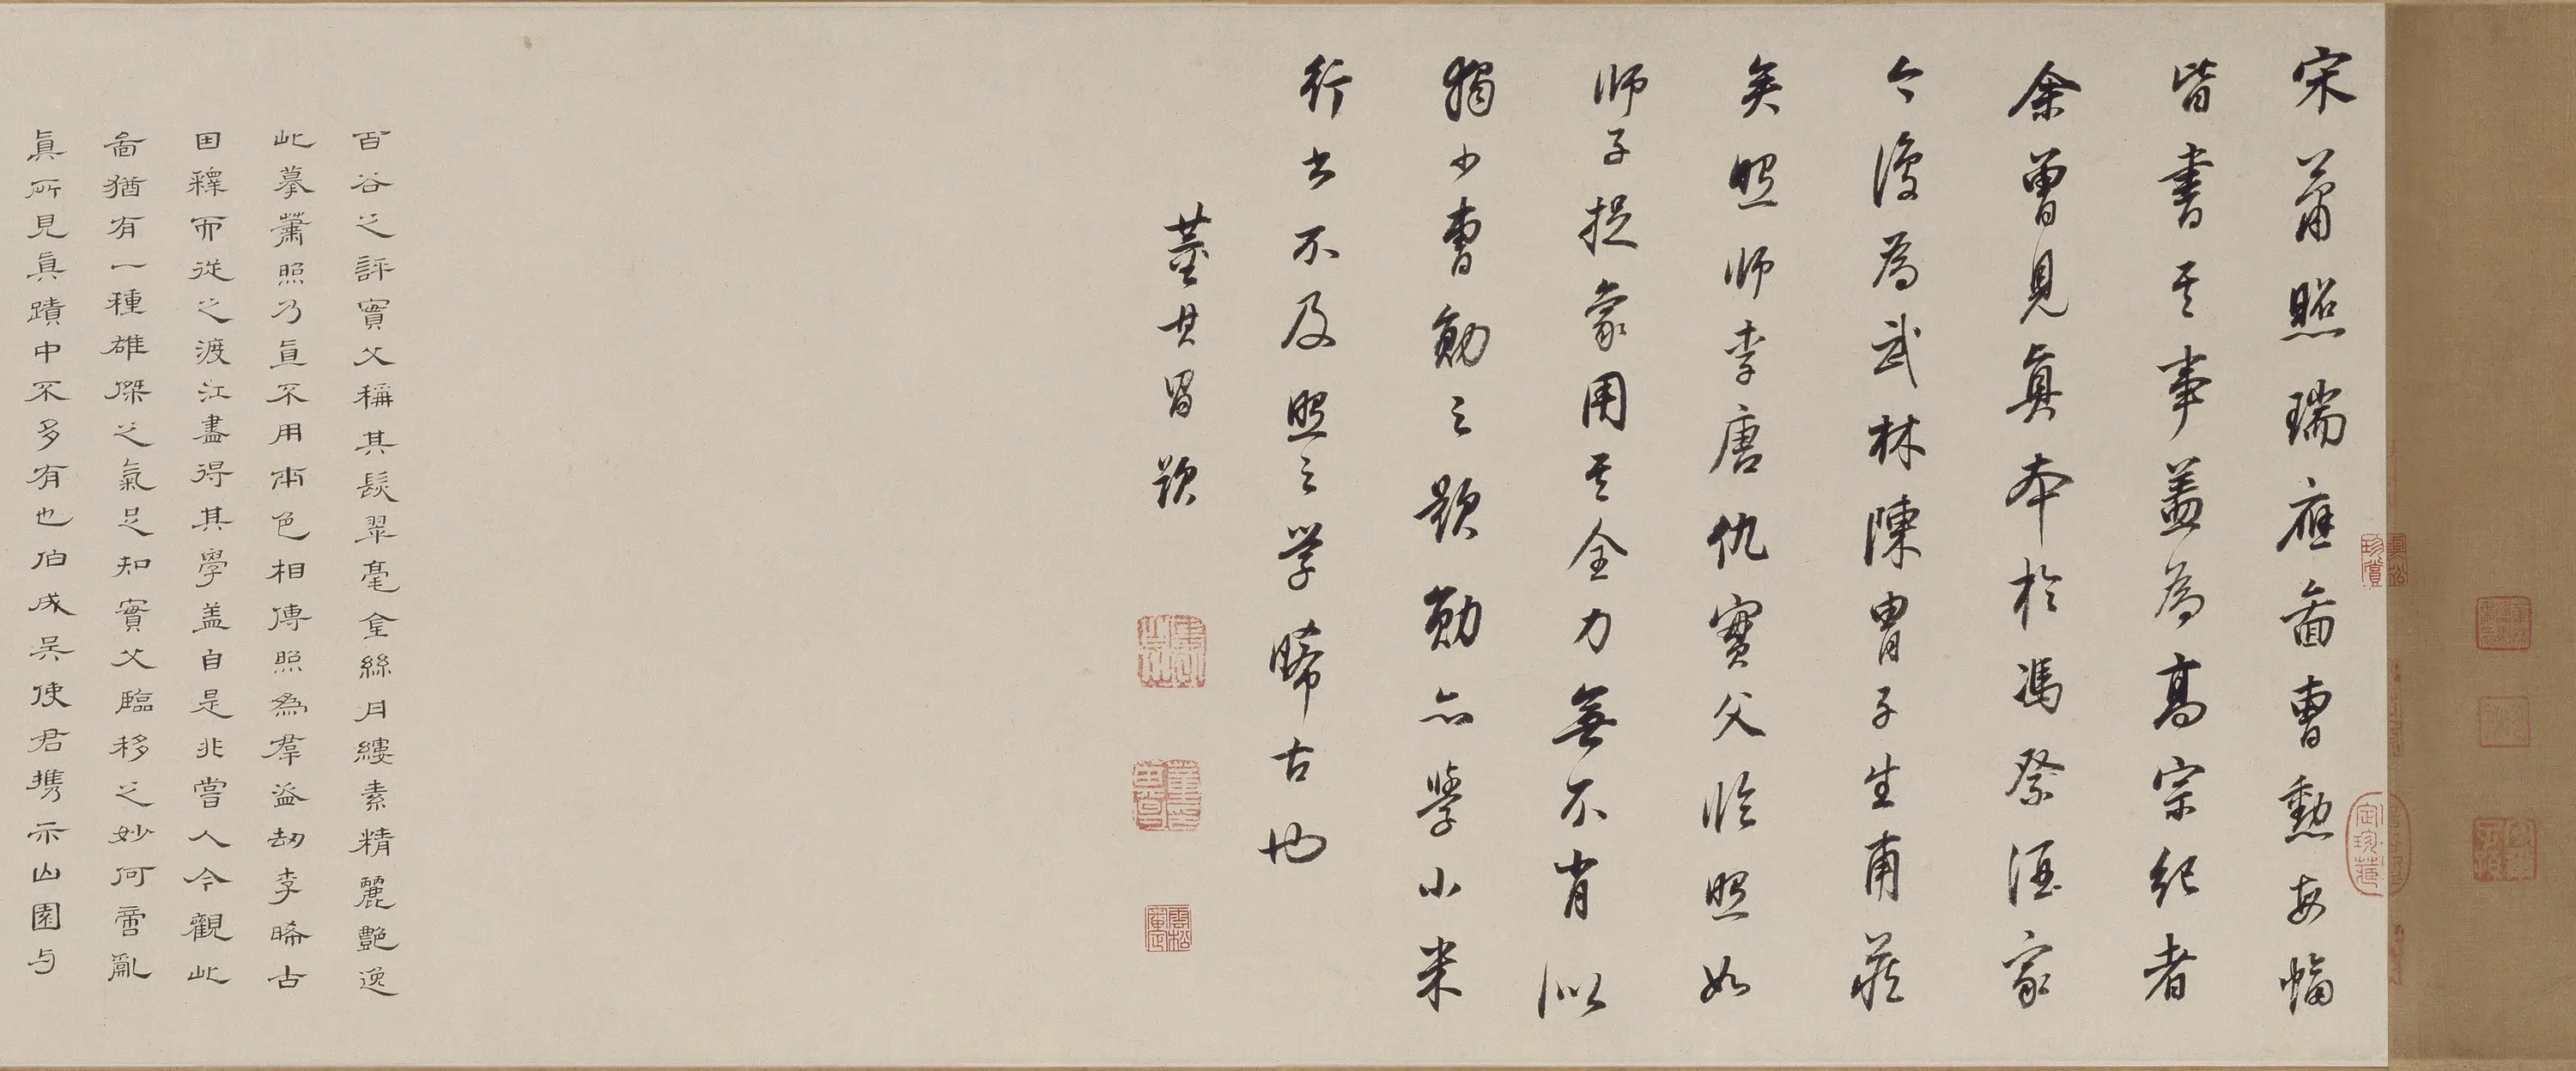 宋蕭照瑞應啚曹勳每幅
皆書其事蓋為高宗紀者
余曾見真本於馮祭酒家
今復為武林陳胄子生甫藏
矣照師李唐仇實父臨照如
師子捉象用其全力無不肖似
獨少曹勛之題勛亦學小米
行書不及照之学晞古也
董其昌題
百谷之評實父稱其髮翠毫金絲丹縷素精麗艷逸
此摹蕭照乃直不用本色相傳照為羣盜劫李晞古
因釋而從之渡江盡得其學蓋自是非嘗人今觀此
啚猶有一種雄傑之氣足知實父臨移之妙何啻亂
真所見真蹟中不多有也伯成吳使君攜示山園与
珍賞